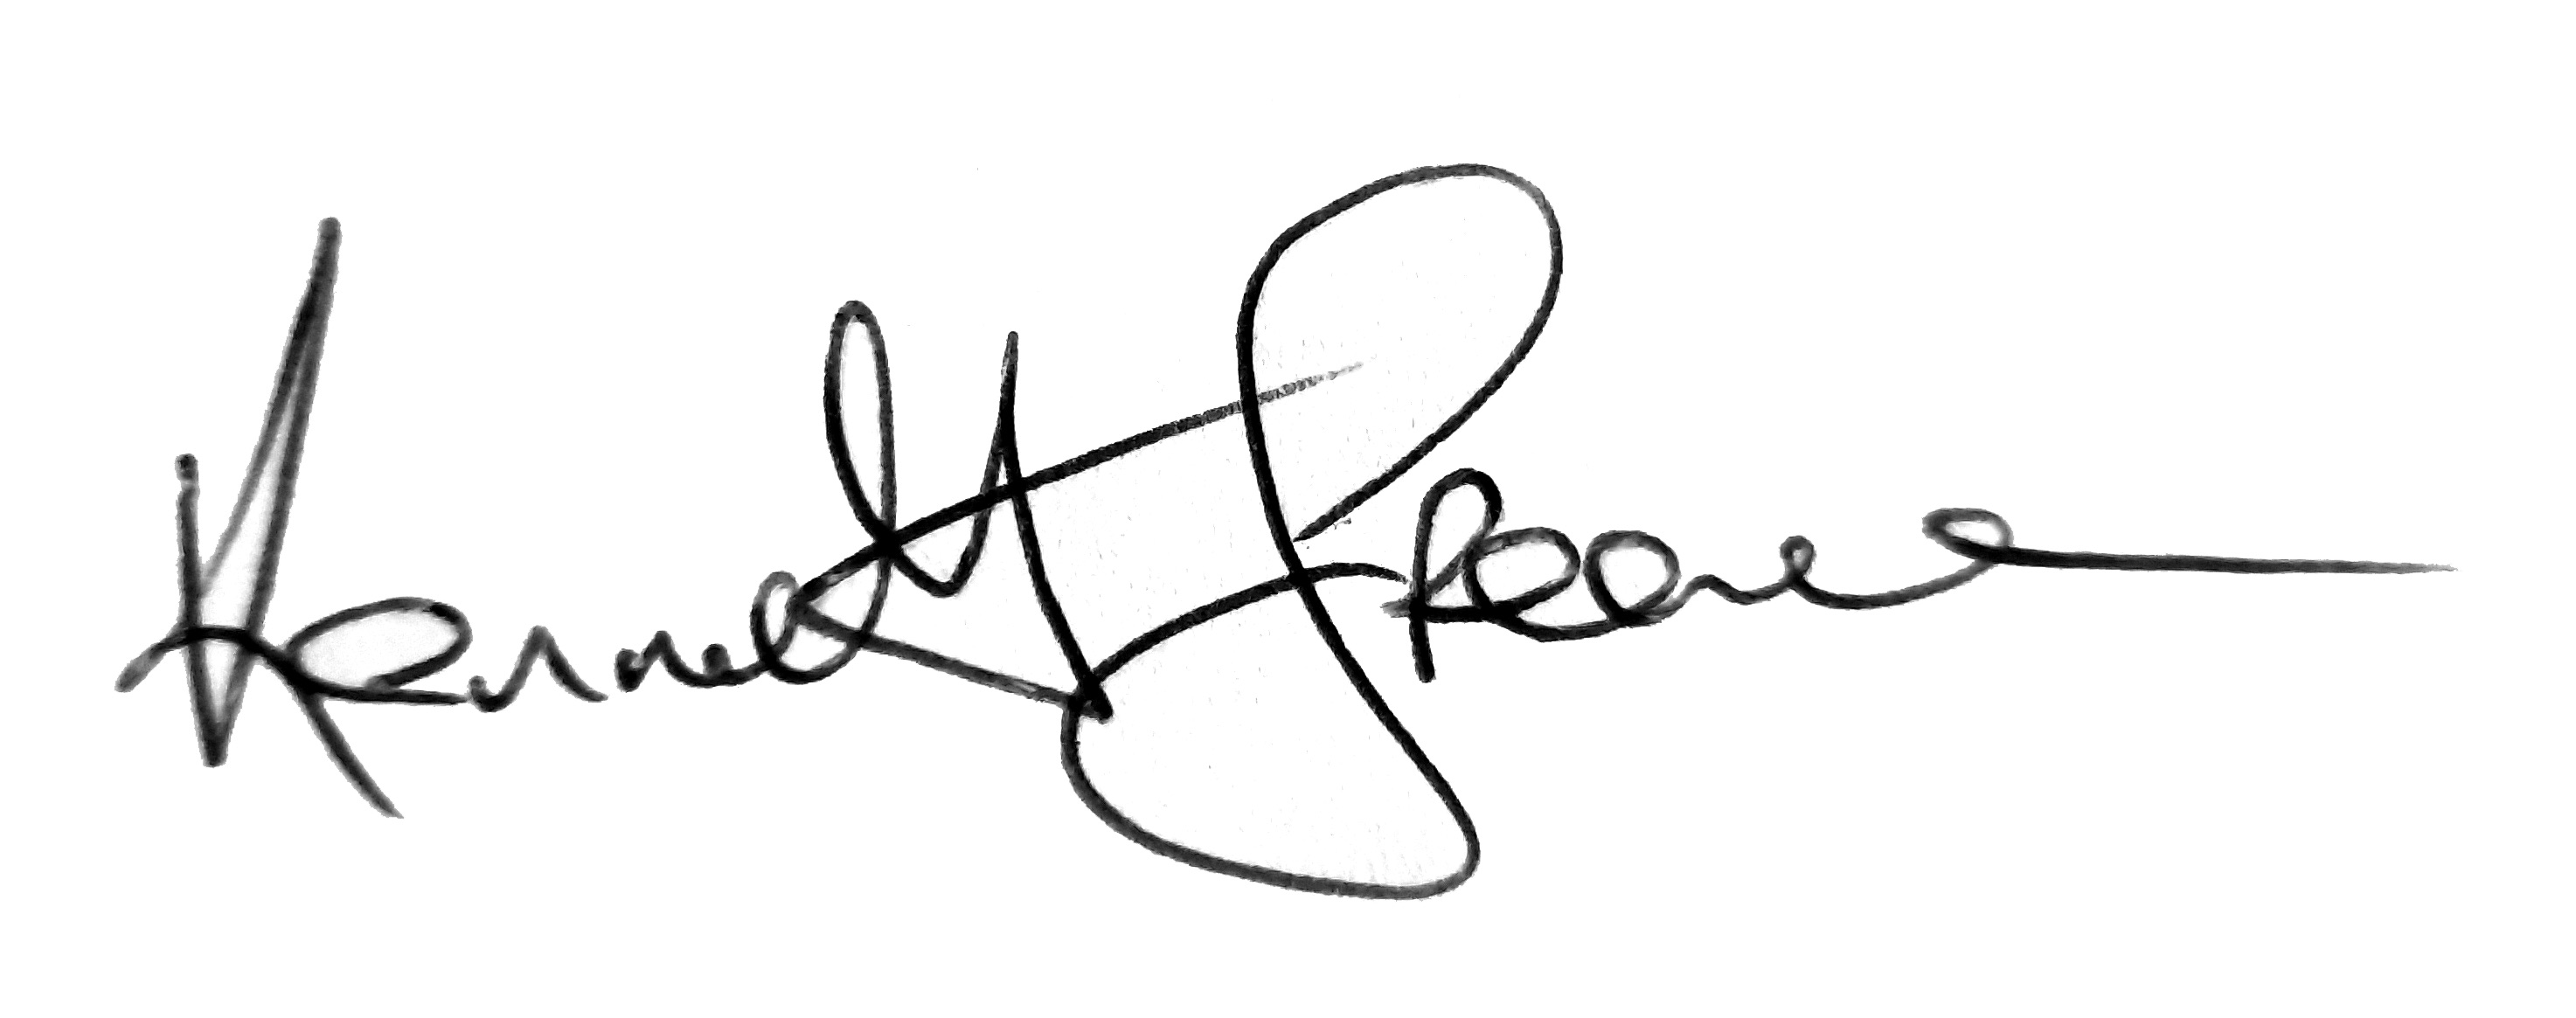 Kenneth Greene